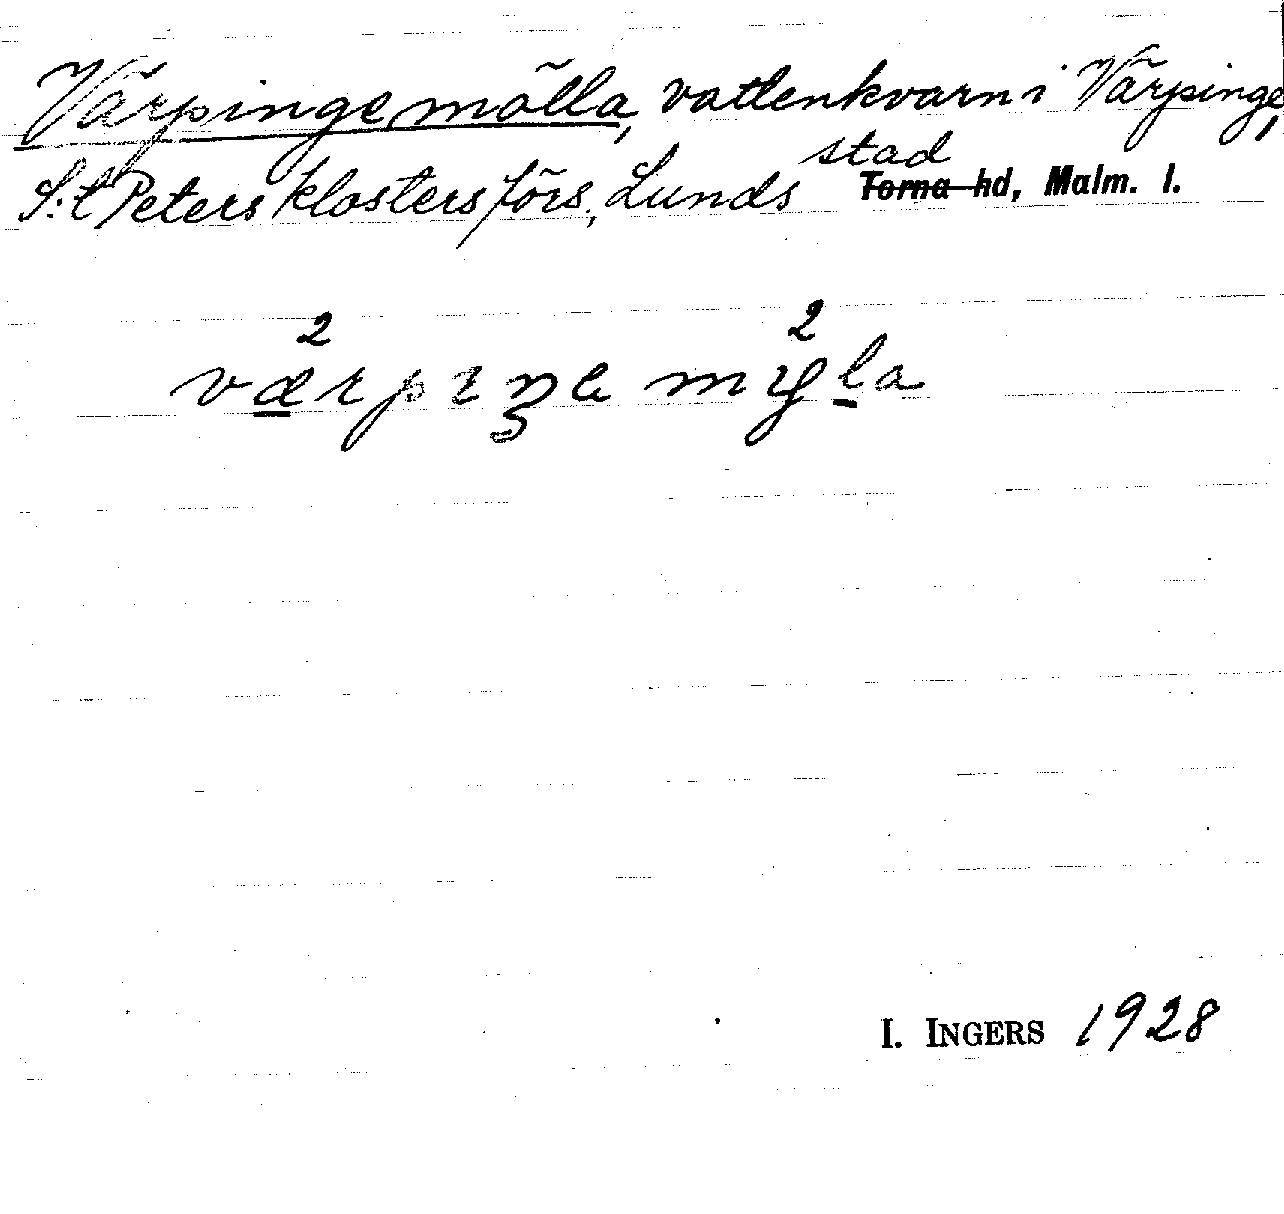 Värpinge mölla, vattenkvarn i Värpinge,
S:t Peters klosters förs., Lunds stad Torna hd, Malm. l.
I. INGERS 1928